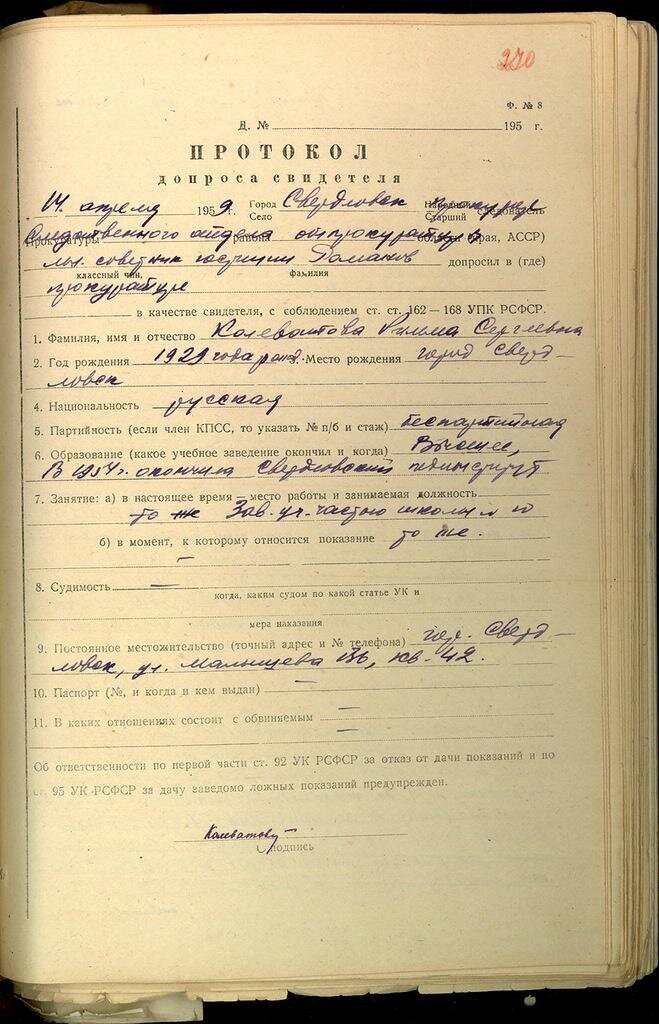 270
Ф. № 8
Д. № 195 г.
ПРОТОКОЛ
допроса свидетеля
14 апреля 1959 г. Город Село Свердловск Народный Старший следователь прокурор
Прокуратуры района области (края, АССР) следственного отдела облпрокуратуры
мл. советник юстиции Романов допросил в (где)
классный чин, фамилия
прокуратуре
в качестве свидетеля, с соблюдением ст. ст. 162 — 168 УПК РСФСР.
1. Фамилия, имя и отчество Колеватова Римма Сергеевна
2. Год рождения 1929 года рожд. 3. Место рождения город Сверд-
ловск
4. Национальность русская
5. Партийность (если член КПСС, то указать № п/б и стаж) беспартийная
6. Образование (какое учебное заведение окончил и когда) Высшее,
В 1954 г. окончила Свердловский пединститут
7. Занятие: а) в настоящее время — место работы и занимаемая должность
то же Зав. уч. частью школы
б) в момент, к которому относится показание то же.
—
8. Судимость —
когда, каким судом по какой статье УК и
мера наказания
9. Постоянное местожительство (точный адрес и № телефона) гор. Сверд-
ловск, ул. Малышева кв. 42.
10. Паспорт (№, и когда и кем выдан) —
11. В каких отношениях состоит с обвиняемым —
—
Об ответственности по первой части ст. 92 УК РСФСР за отказ от дачи показаний и по
ст. 95 УК РСФСР за дачу заведомо ложных показаний предупрежден.
Колеватову
подпись